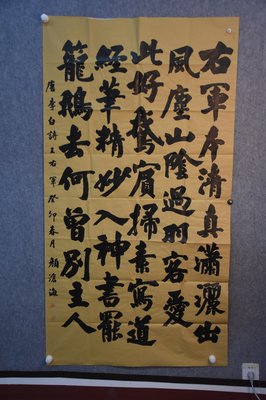 右軍本清真瀟灑出
風塵山陰過羽客愛
此好鵝賓掃素寫道
經筆精妙入神書罷
籠鵝去何曾別主人
唐李白詩王右軍癸卯春月顏滄海